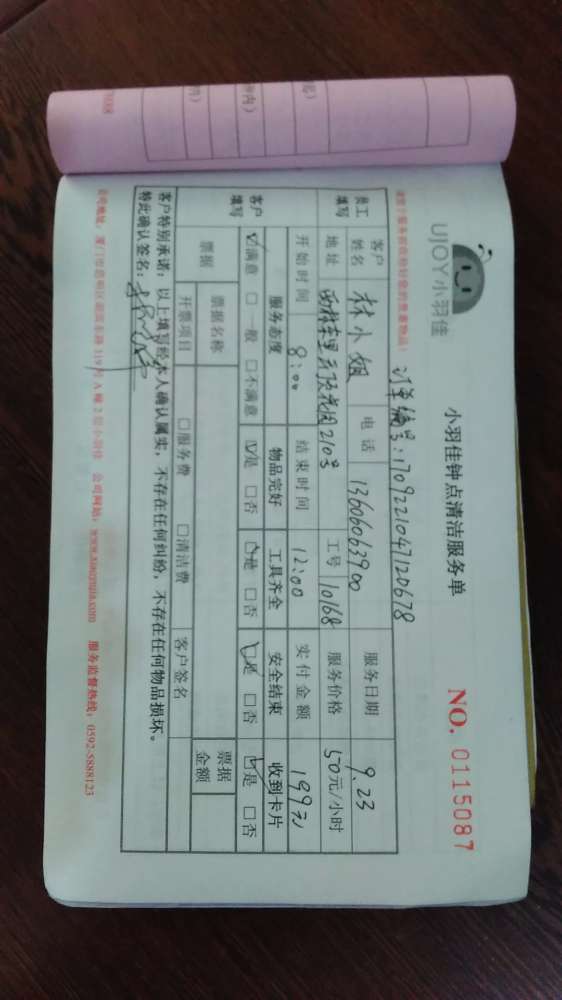 UJOY小羽佳
小羽佳钟点清洁服务单
NO. 0115087
订单编号:1709221047120678
员工填写
客户姓名 林小姐 电话 13606063900 服务日期 9.23
地址 210号 工号 10168 服务价格 50元/小时
开始时间 8:00 结束时间 12:00 实付金额 199元
客户填写
服务态度 物品完好 工具齐全 安全结束 收到卡片
☑满意 □一般 □不满意 ☑是 □否 ☑是 □否 ☑是 □否 ☑是 □否
票据 票据名称 票据金额
开票项目 □服务费 □清洁费 客户签名
客户特别承诺:以上填写经本人确认属实,不存在任何纠纷,不存在任何物品损坏。
特此确认签名:
公司网站:www.xiaoyujia.com 服务监督热线:0592-5888123